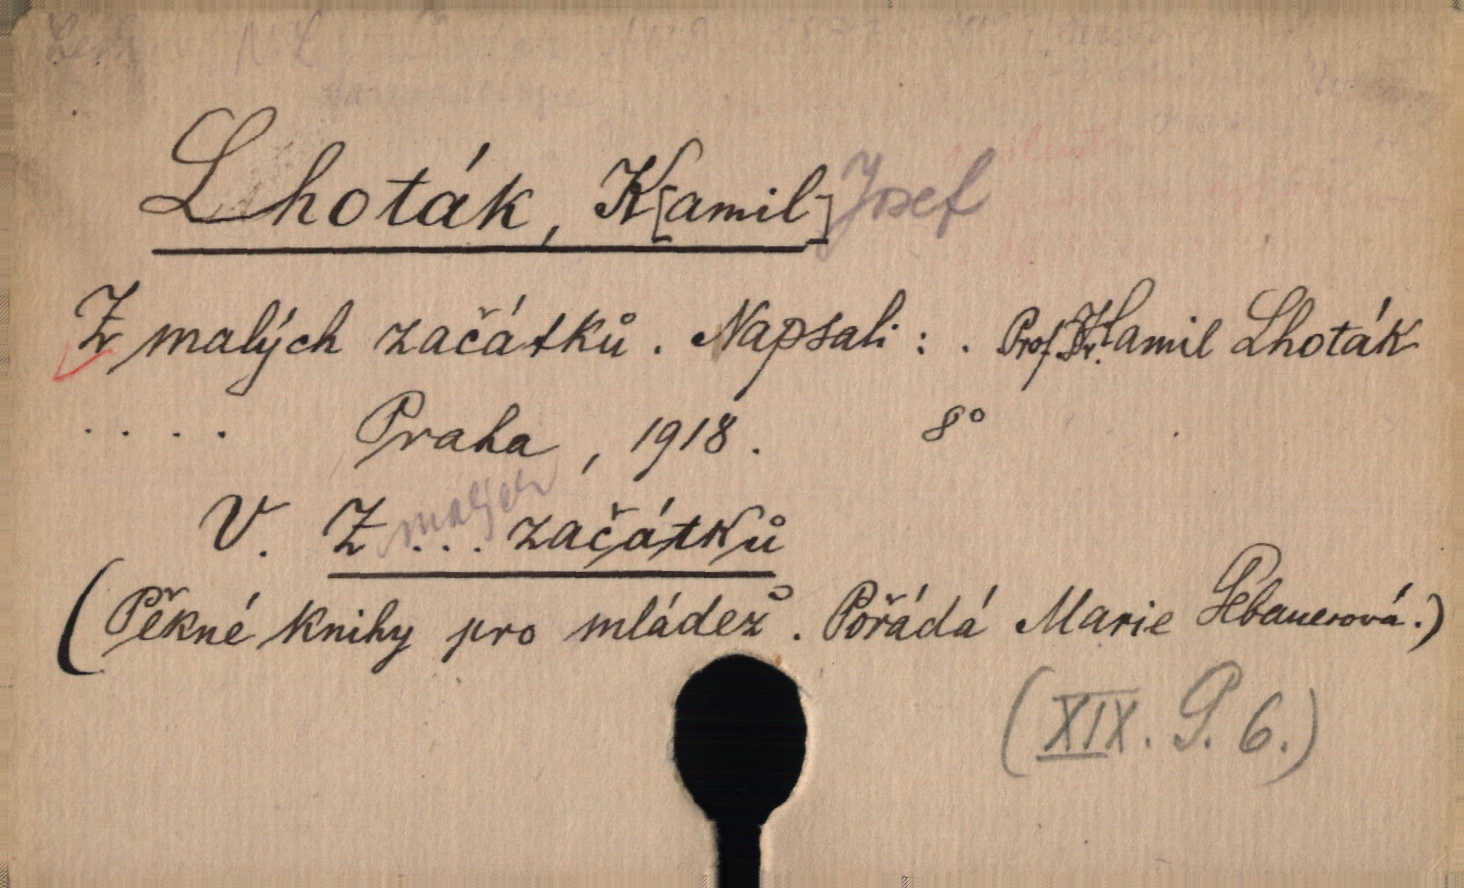 Lhoták, K[amil] Josef
Z malých začátků. Napsali: . Prof. Dr. Kamil Lhoták
. . . . Praha, 1918. 8°
V. Z malých ... začátků
(Pěkné knihy pro mládež. Pořádá Marie Gebauerová.)
(XIX. G. 6.)